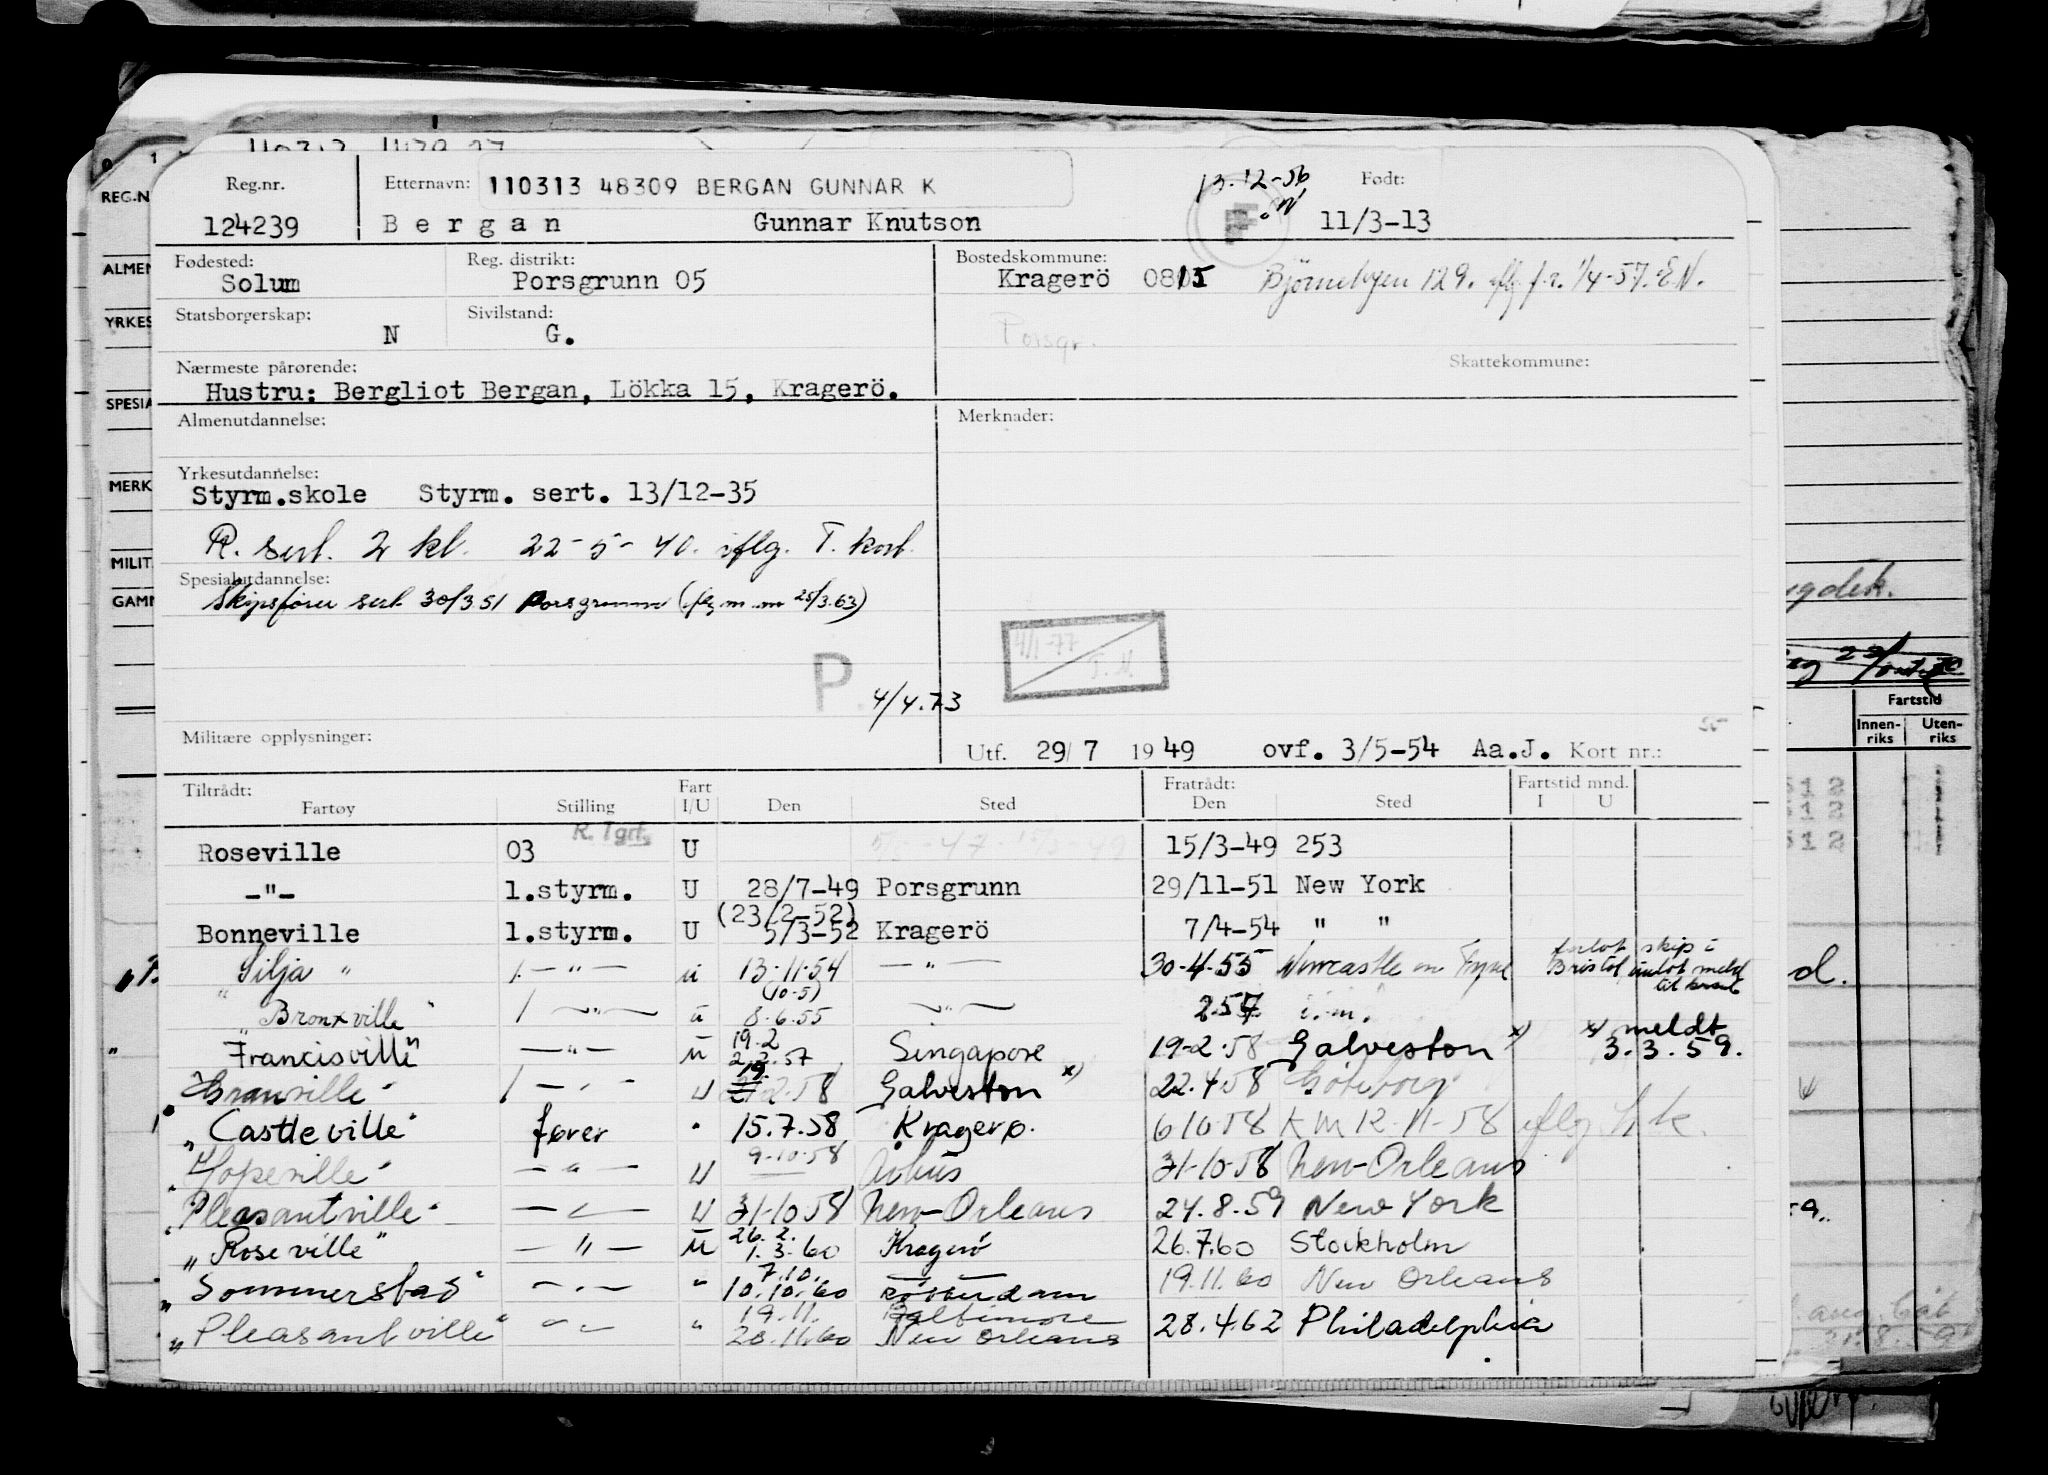 Reg.nr. Etternavn: 110313 48309 BERGAN GUNNAR K 13.12-56 Født:
124239 Bergan Gunnar Knutson F 11/3-13
Fødested: Reg. distrikt: Bostedskommune:
Solum Porsgrunn 05 Kragerö 0815 1/4-57. E.N.
Statsborgerskap: Sivilstand:
N G. Porsgr.
Nærmeste pårørende: Skattekommune:
Hustru: Bergliot Bergan, Lökka 15, Kragerö.
Almenutdannelse: Merknader:
Yrkesutdannelse:
Styrm.skole Styrm. sert. 13/12-35
R. sert. 2 kl. 22-5-40. iflg. T. kort.
Spesialutdannelse:
Skipsfører sert 30/3.51 Porsgrunn 25/3.63)
4/1-77 T.M.
P. 4/4.73
Militære opplysninger: Utf. 29/7 1949 ovf. 3/5-54 Aa.J. Kort nr.:
Tiltrådt: Fratrådt: Fartstid mnd.
Fartøy Stilling Fart I/U Den Sted Den Sted I U
Roseville 03 R. Tgrt. U 15/3-49 253
-"- 1.styrm. U 28/7-49 Porsgrunn 29/11-51 New York
Bonneville 1.styrm. U (23/2-52) 5/3-52 Kragerö 7/4-54 " "
Silja " 1. -"- u 13.11.54 -"- 30.4.55 Newcastle on Tyne
forlot skip i Bristol
"Bronxville" 1 -"- u (10-5) 8.6.55 -"- 2.57
"Francisville" -"- u 19.2 2.2.57 Singapore 19-2.58 Galveston x) x) meldt 3.3.59.
1 -"- U 19.2.58 Galveston x) 22.4.58 Göteborg
"Castleville" fører " 15.7.58 Kragerø. 6 10.58 KM 12-11-58 iflg
"Hopeville" -"- U 9-10-58 Århus 31-10-58 New-Orleans
"Pleasantville" -"- U 31-10 58 New-Orleans 24.8.59 New York
"Roseville" -"- U 26.2. 1.3.60 Kragerö 26.7.60 Stockholm
"Sommerstad" -"- " 7.10. 10.10.60 Rotterdam 19.11.60 New Orleans
"Pleasantville" -"- " 19.11. 20.11.60 Baltimore New Orleans 28.4.62 Philadelphia
REG.N
ALMEN
YRKES
SPESIA
MERK
MILIT
GAMM
Fartstid
Innenriks Utenriks
512
512
512